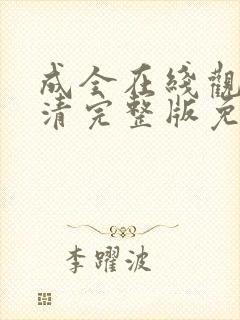 成全在綫觀
清完整版免
李躍波